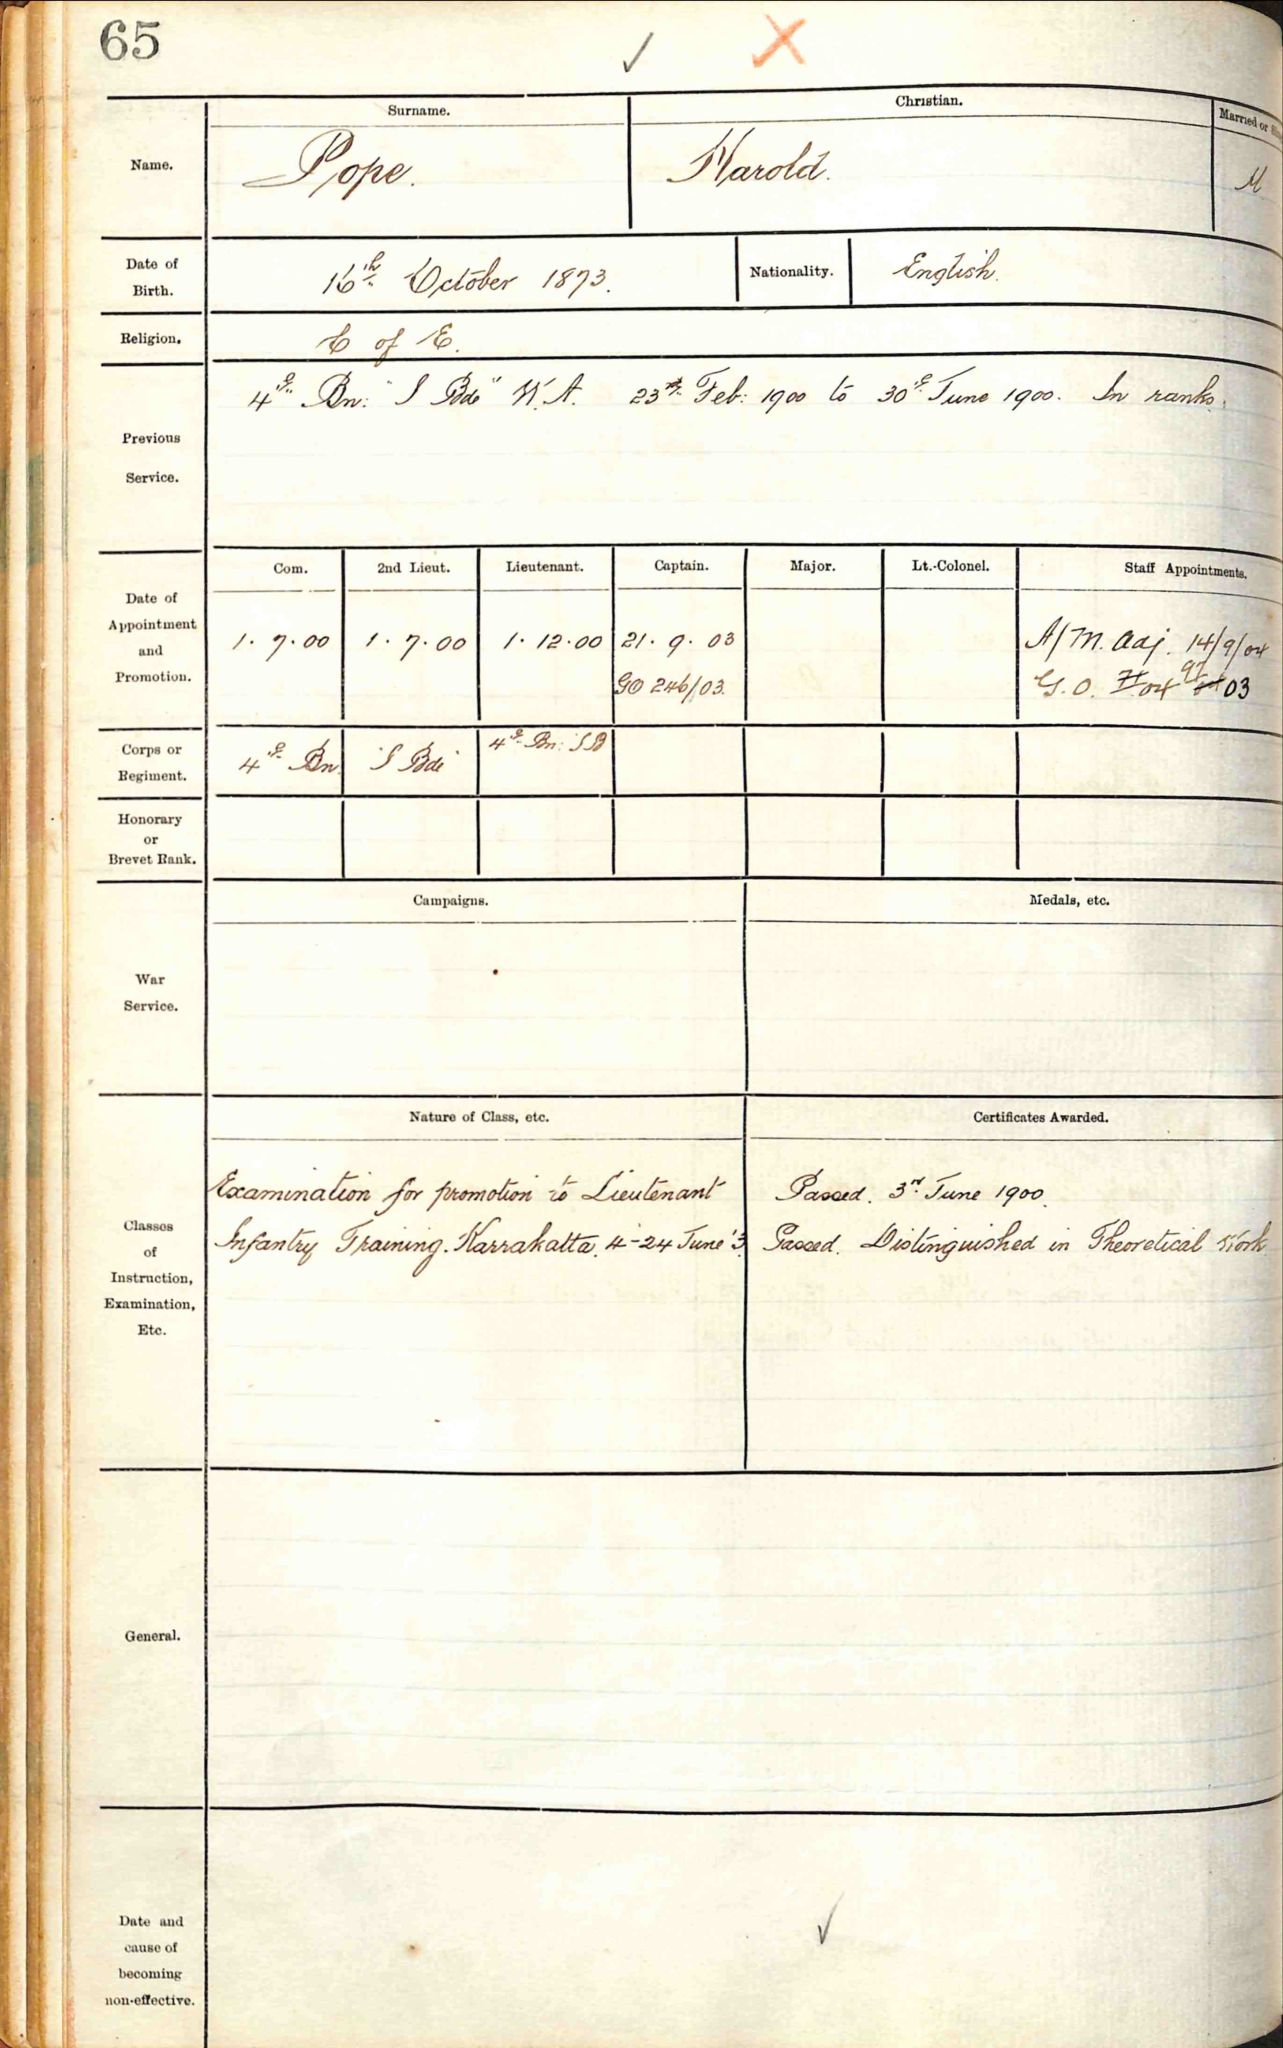 65
Surname.
Christian.
Married or
Name.
Pope.
Harold.
M
Date of
Birth.
16th October 1873.
Nationality.
English.
Religion.
C of E.
Previous
Service.
4th Bn: "I Bde" W. A. 23rd Feb: 1900 to 30th June 1900. In ranks.
Date of
Appointment
and
Promotion.
Com.
2nd Lieut.
Lieutenant.
Captain.
Major.
Lt.-Colonel.
Staff Appointments.
1. 7. 00
1. 7. 00
1. 12. 00
21. 9. 03
A/M. Adj. 14/9/04
GO 246/03.
G. O. 04 97 03
Corps or
Regiment.
4th Bn
"I Bde"
4th Bn: I B
Honorary
or
Brevet Rank.
War
Service.
Campaigns.
Medals, etc.
Classes
of
Instruction,
Examination,
Etc.
Nature of Class, etc.
Certificates Awarded.
Examination for promotion to Lieutenant
Passed. 3rd June 1900.
Infantry Training. Karrakatta. 4-24 June '3.
Passed. Distinguished in Theoretical Work
General.
Date and
cause of
becoming
non-effective.